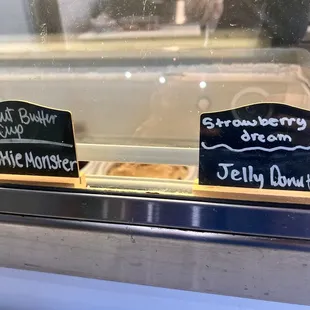 ut Butter
Cup
kie Monster
Strawberry
dream
Jelly Donut